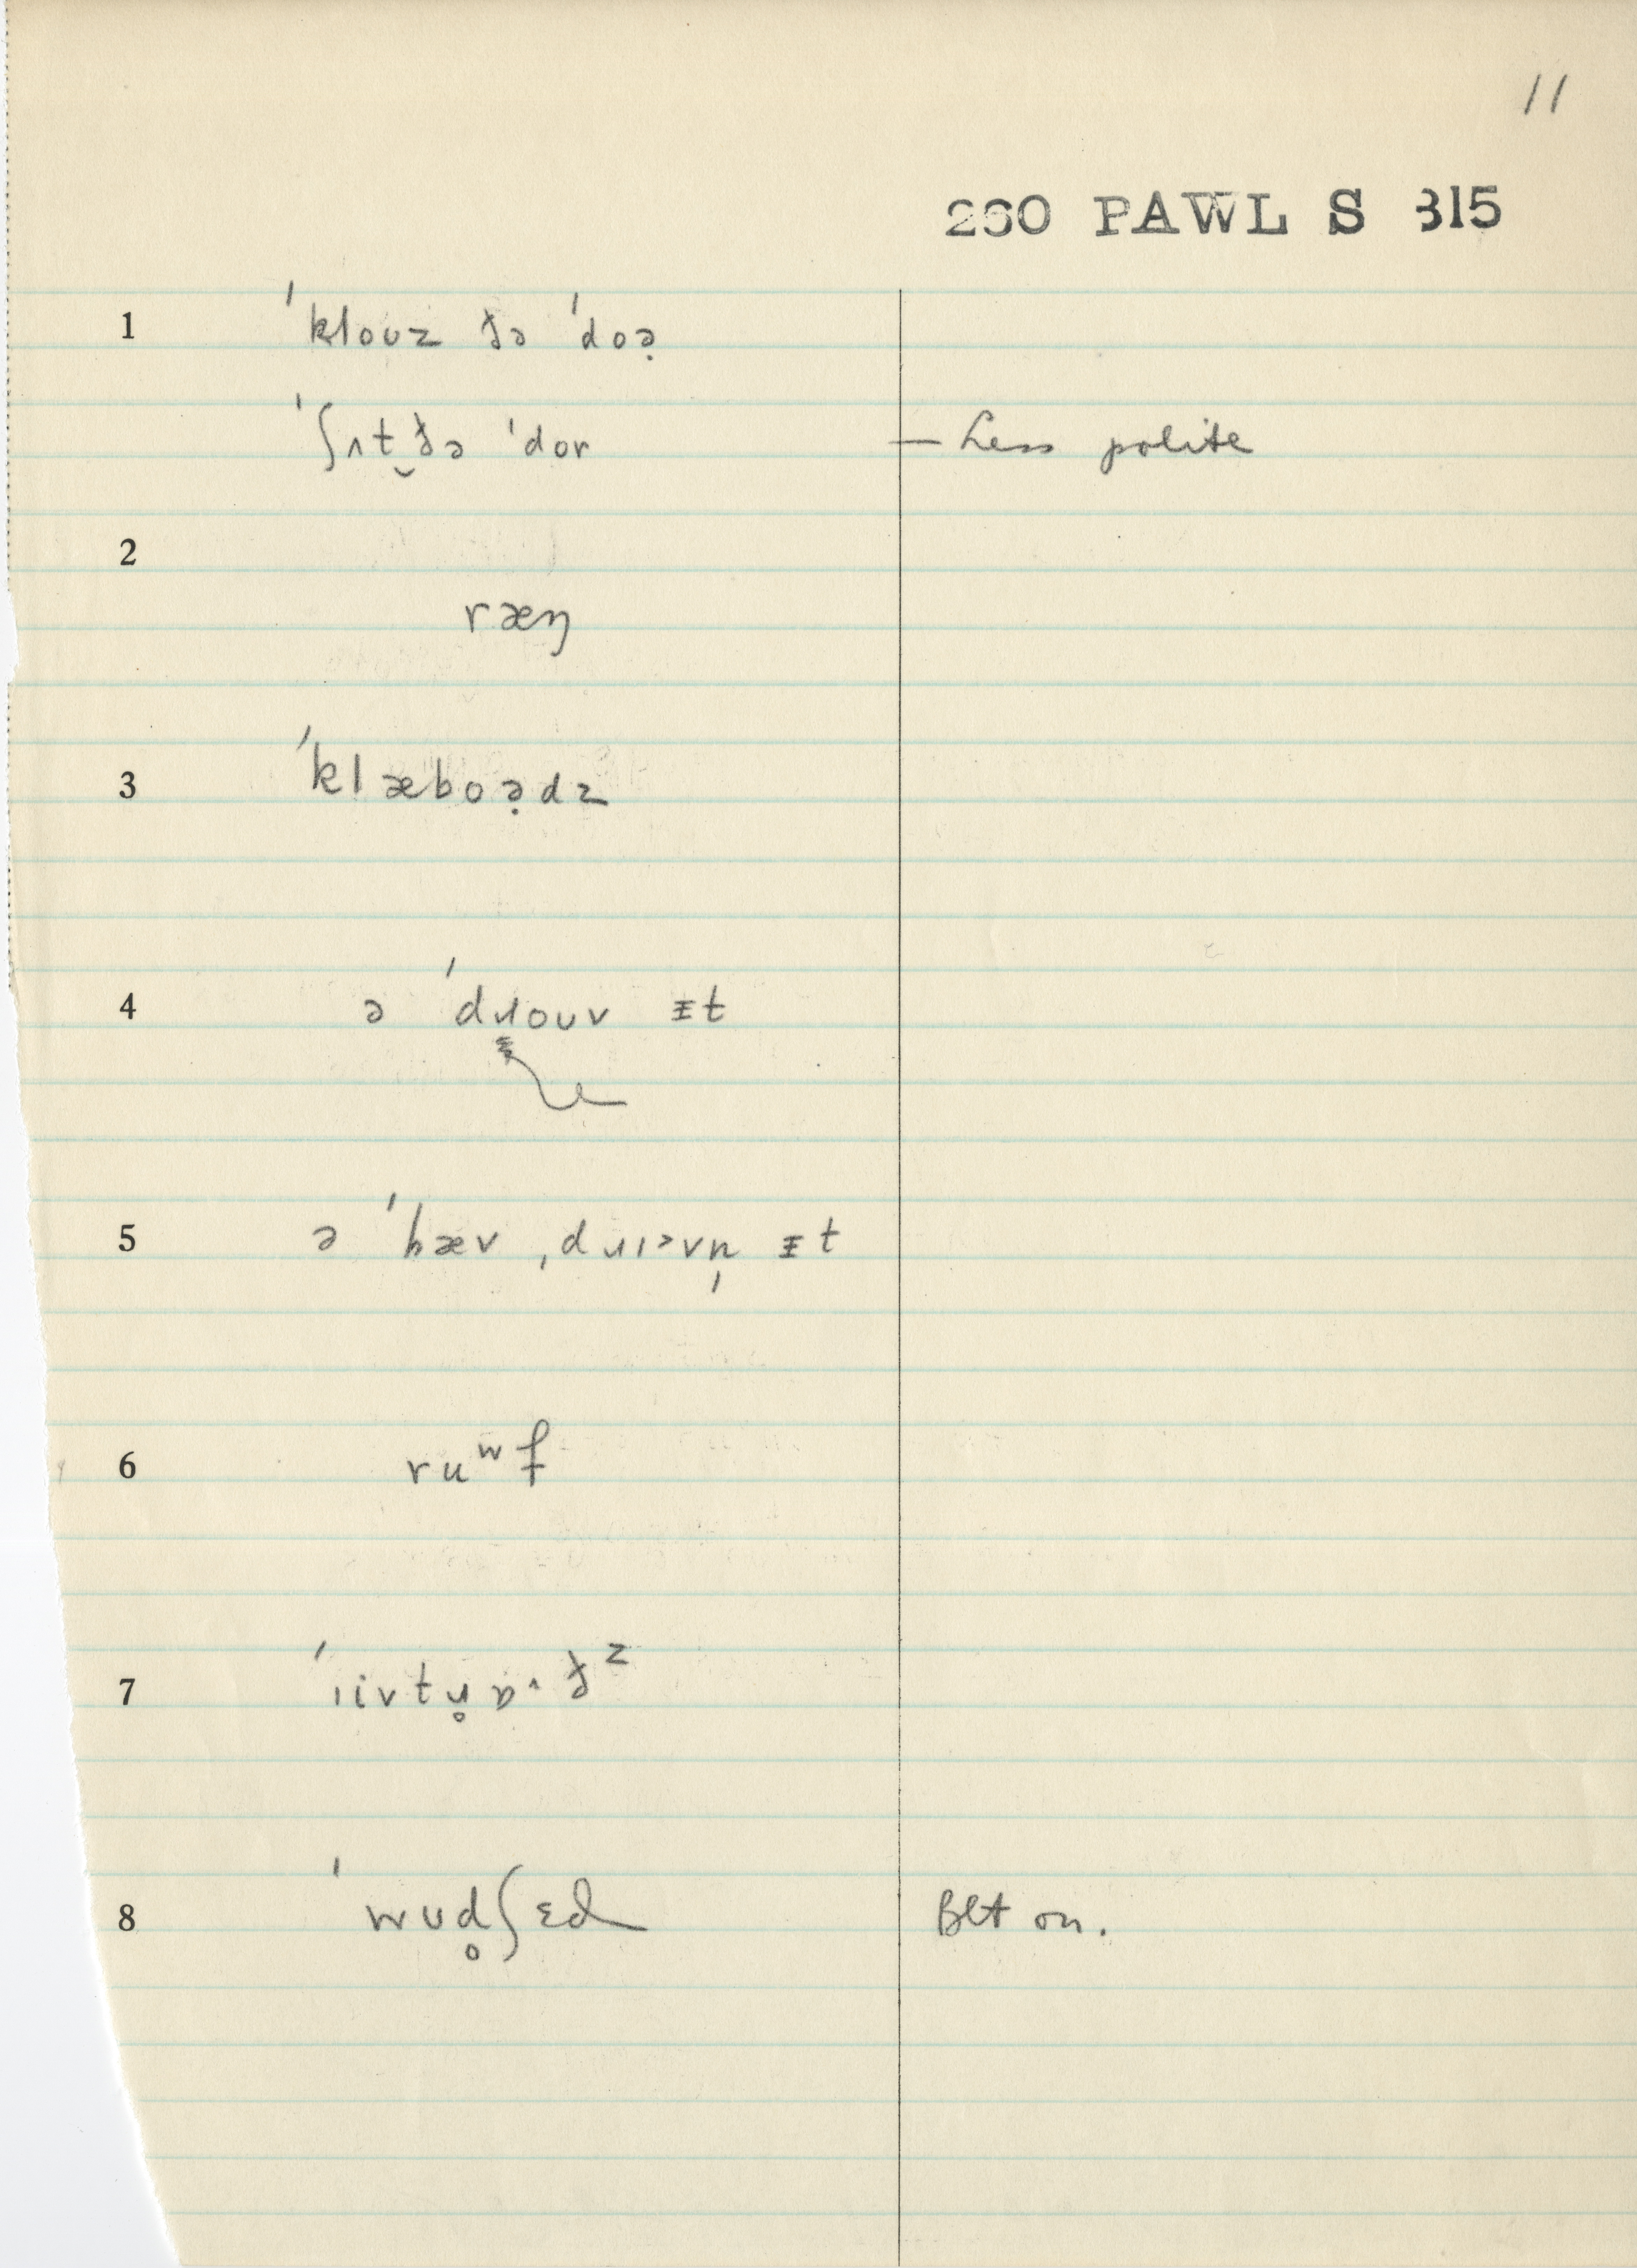 11
260 PAWL S 315
1 ˈkloʊz ðə ˈdoə̣
ˈʃʌt̬ðə ˈdor – Less polite
2
ræŋ
3 ˈklæboə̣dz
4 ə ˈdɹoʊv ᵻt
5 ə ˈhæv ˌdɹɪəvn̩ ᵻt
6 ruʷf
7
8 ˈwʊd̥ʃɛd Blt on.